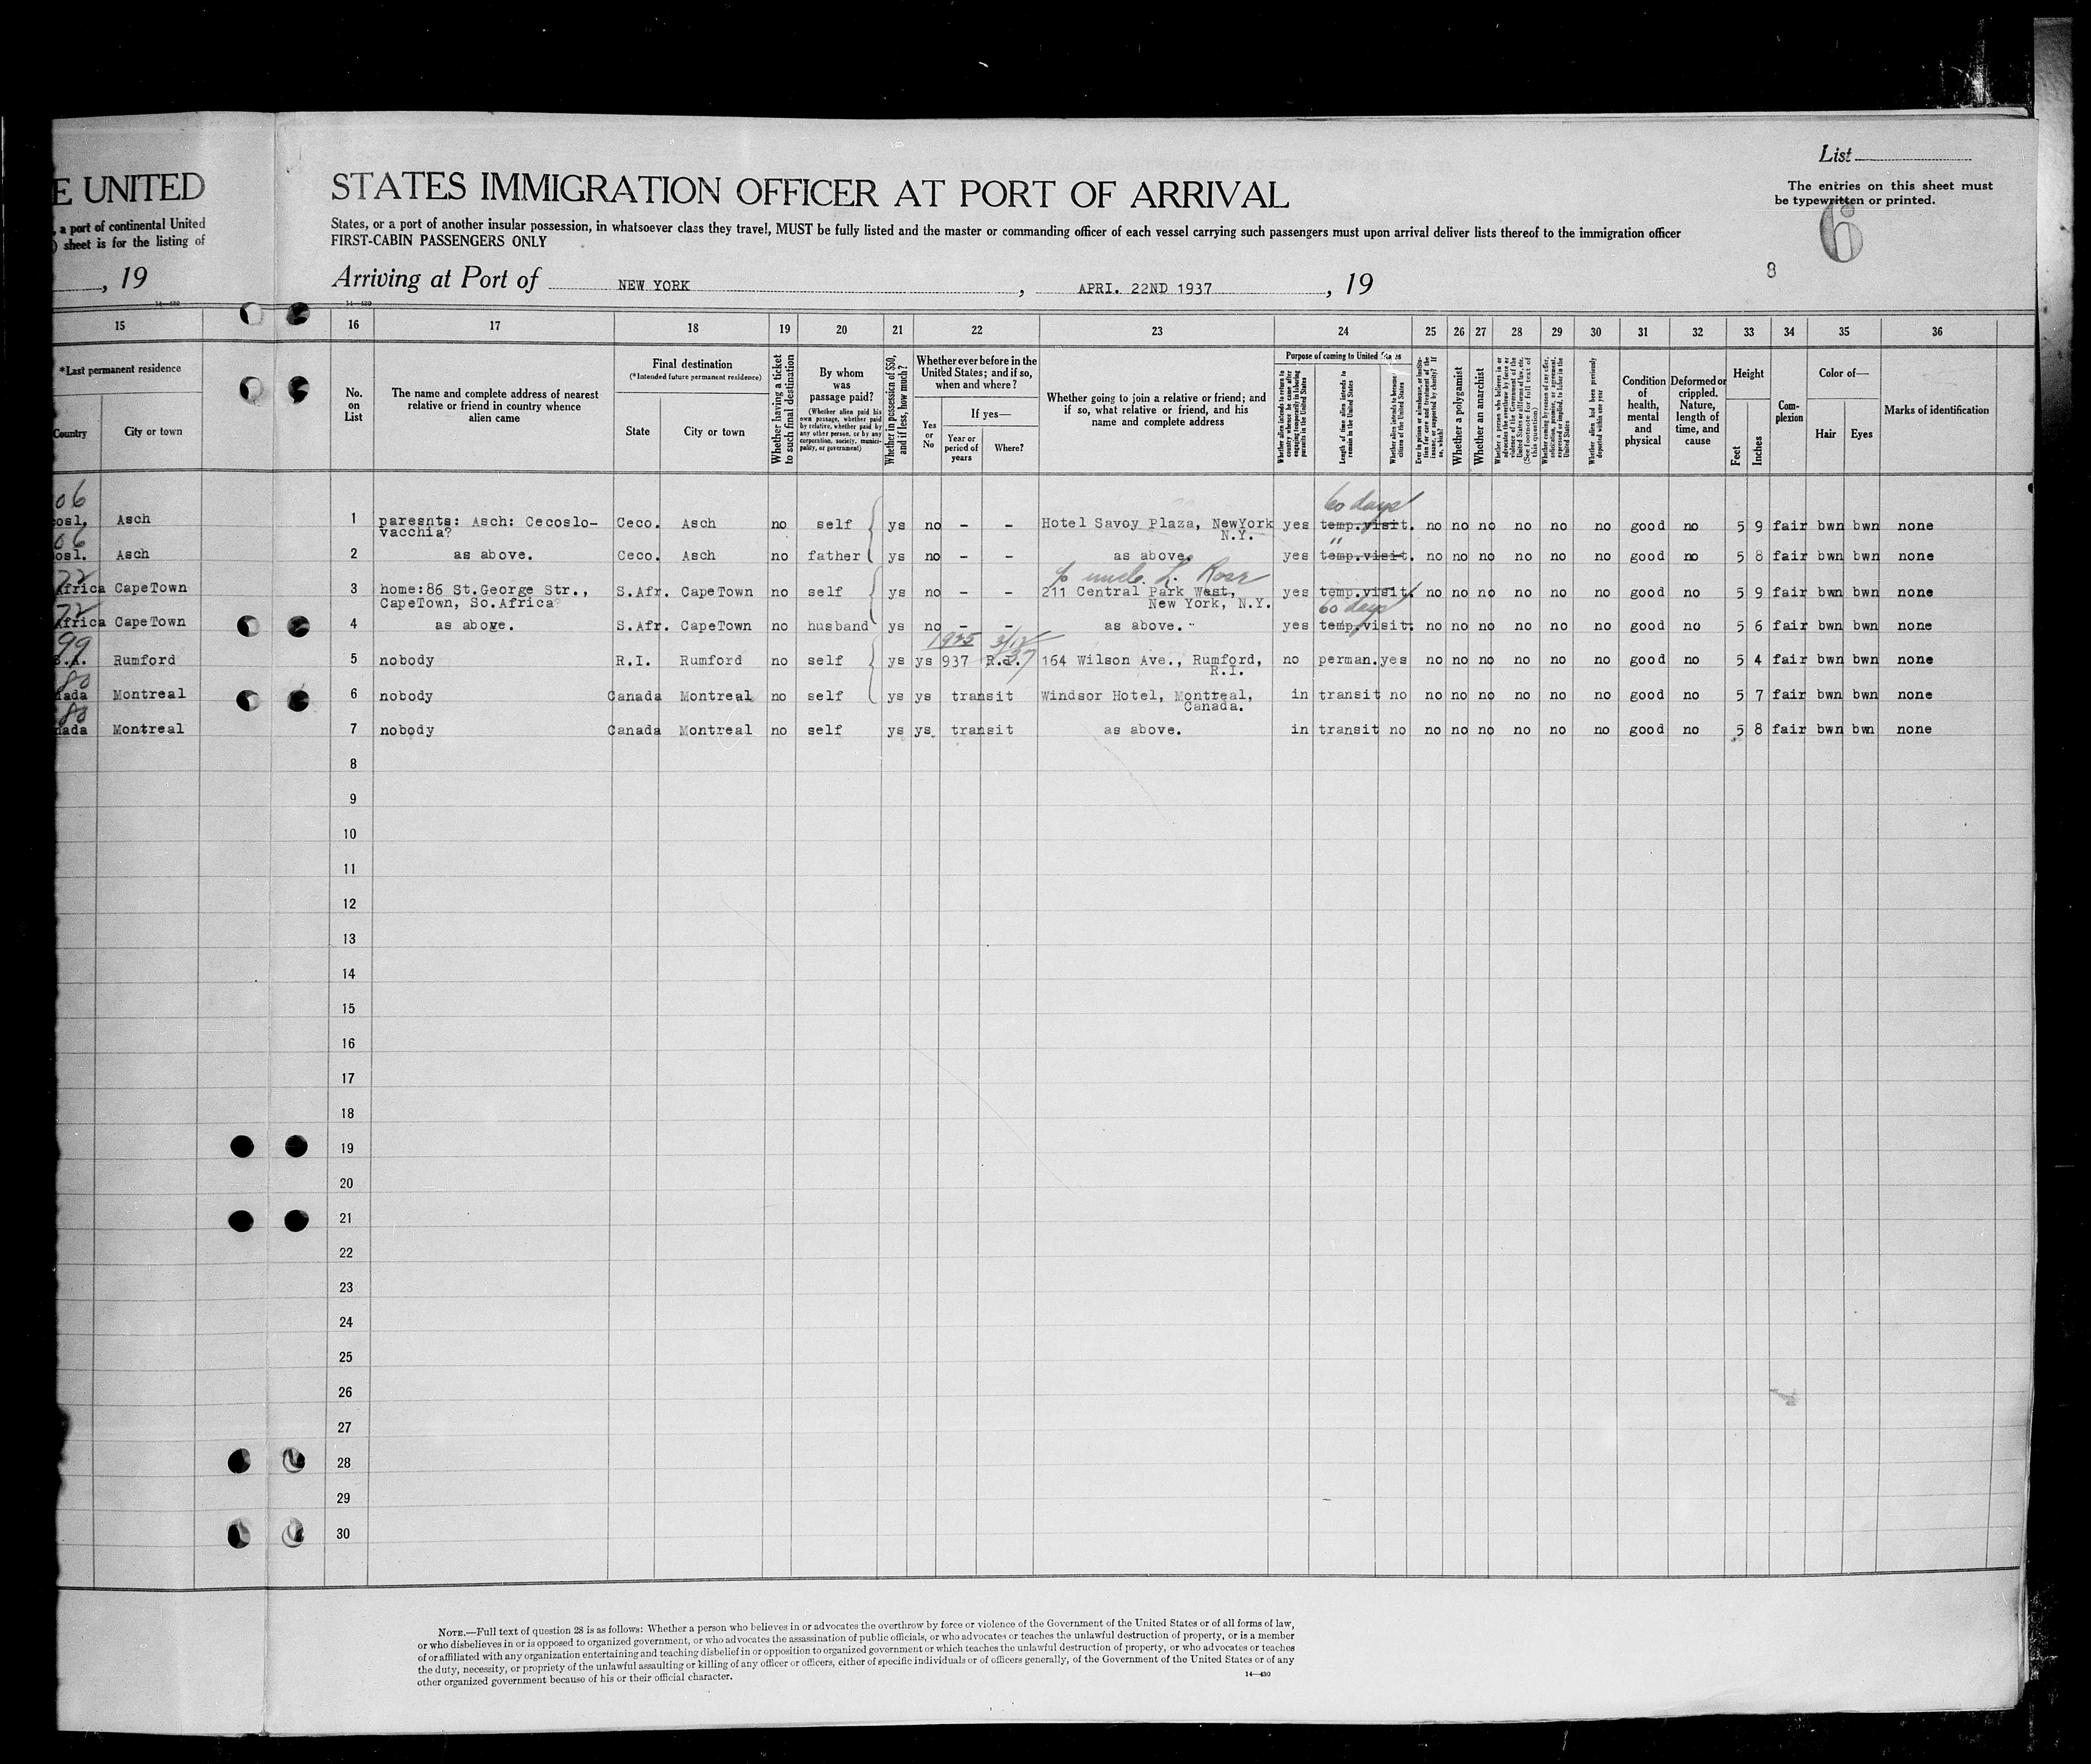 List
E UNITED STATES IMMIGRATION OFFICER AT PORT OF ARRIVAL
The entries on this sheet must
be typewritten or printed.
6
, a port of continental United
) sheet is for the listing of
States, or a port of another insular possession, in whatsoever class they travel, MUST be fully listed and the master or commanding officer of each vessel carrying such passengers must upon arrival deliver lists thereof to the immigration officer
FIRST-CABIN PASSENGERS ONLY
, 19
Arriving at Port of NEW YORK , APRI. 22ND 1937 , 19
8
14—430 14—430
15 16 17 18 19 20 21 22 23 24 25 26 27 28 29 30 31 32 33 34 35 36
*Last permanent residence
Country
City or town
No.
on
List
The name and complete address of nearest
relative or friend in country whence
alien came
Final destination
(*Intended future permanent residence)
State
City or town
Whether having a ticket
to such final destination
By whom
was
passage paid?
(Whether alien paid his
own passage, whether paid
by relative, whether paid by
any other person, or by any
corporation, society, munici-
pality, or government)
Whether in possession of $50,
and if less, how much?
Whether ever before in the
United States; and if so,
when and where?
Yes
or
No
If yes—
Year or
period of
years
Where?
Whether going to join a relative or friend; and
if so, what relative or friend, and his
name and complete address
Purpose of coming to United States
Whether alien intends to return to
country whence he came after
engaging temporarily in laboring
pursuits in the United States
Length of time alien intends to
remain in the United States
Whether alien intends to become
citizen of the United States
Ever in prison or almshouse, or institu-
tion for care and treatment of the
insane, or supported by charity? If
so, which?
Whether a polygamist
Whether an anarchist
Whether a person who believes in or
advocates the overthrow by force or
violence of the Government of the
United States or all forms of law, etc.
(See footnote for full text of
this question)
Whether coming by reason of any offer,
solicitation, promise, or agreement,
expressed or implied, to labor in the
United States
Whether alien had been previously
deported within one year
Condition
of
health,
mental
and
physical
Deformed or
crippled.
Nature,
length of
time, and
cause
Height
Feet
Inches
Com-
plexion
Color of—
Hair
Eyes
Marks of identification
06 60 days
osl. Asch 1 paresnts: Asch: Cecoslo- Ceco. Asch no self ys no – – Hotel Savoy Plaza, NewYork yes temp.visit. no no no no no no good no 5 9 fair bwn bwn none
vacchia? N.Y.
06 "
osl. Asch 2 as above. Ceco. Asch no father ys no – – as above. yes temp.visit. no no no no no no good no 5 8 fair bwn bwn none
72 c/o uncle. L. Rose
Africa CapeTown 3 home:86 St.George Str., S.Afr. CapeTown no self ys no – – 211 Central Park West, yes temp.visit. no no no no no no good no 5 9 fair bwn bwn none
CapeTown, So.Africa New York, N.Y.
72 60 days
Africa CapeTown 4 as above. S.Afr. CapeTown no husband ys no – – as above. yes temp.visit. no no no no no no good no 5 6 fair bwn bwn none
99 1925
S.A. Rumford 5 nobody R.I. Rumford no self ys ys 937 164 Wilson Ave., Rumford, no perman. yes no no no no no no good no 5 4 fair bwn bwn none
R.I.
80
nada Montreal 6 nobody Canada Montreal no self ys ys transit Windsor Hotel, Montreal, in transit no no no no no no no good no 5 7 fair bwn bwn none
Canada.
80
nada Montreal 7 nobody Canada Montreal no self ys ys transit as above. in transit no no no no no no no good no 5 8 fair bwn bwn none
8
9
10
11
12
13
14
15
16
17
18
19
20
21
22
23
24
25
26
27
28
29
30
NOTE.—Full text of question 28 is as follows: Whether a person who believes in or advocates the overthrow by force or violence of the Government of the United States or of all forms of law,
or who disbelieves in or is opposed to organized government, or who advocates the assassination of public officials, or who advocates or teaches the unlawful destruction of property, or is a member
of or affiliated with any organization entertaining and teaching disbelief in or opposition to organized government or which teaches the unlawful destruction of property, or who advocates or teaches
the duty, necessity, or propriety of the unlawful assaulting or killing of any officer or officers, either of specific individuals or of officers generally, of the Government of the United States or of any
other organized government because of his or their official character.
14—430